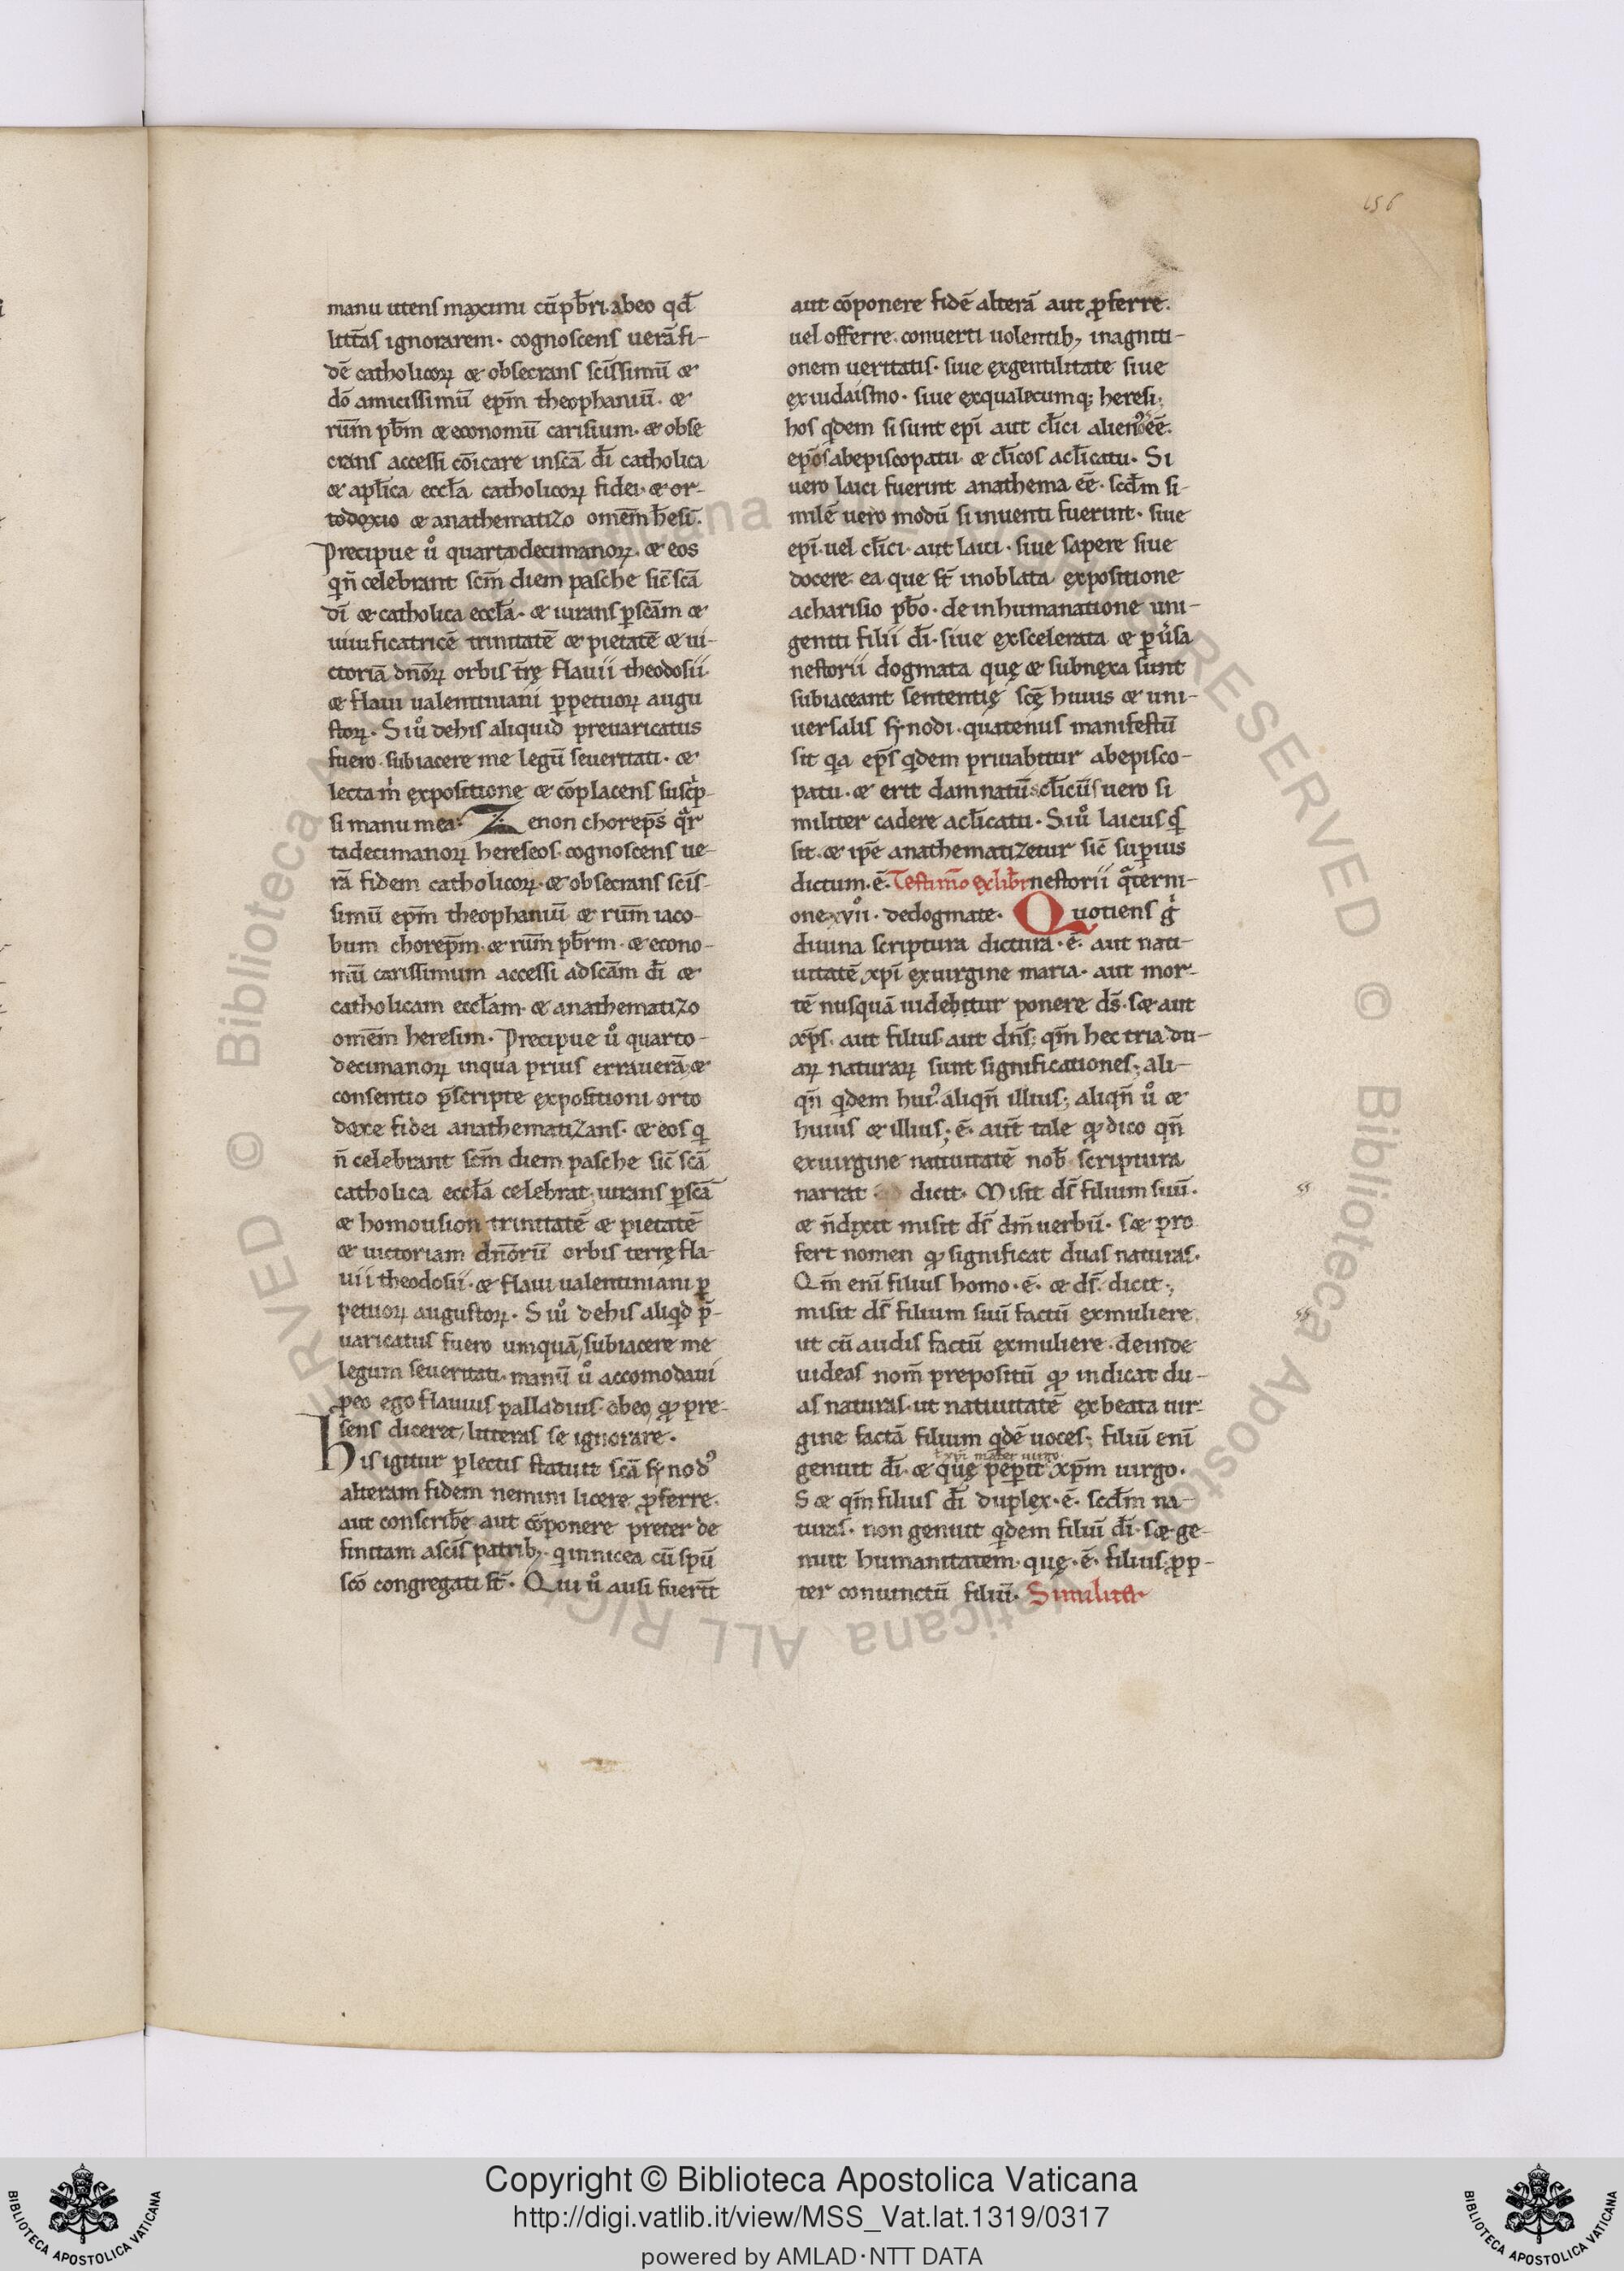 156
manu utens maximi cū p̄bri. abeo qd̄
litt̄as ignorarem. cognoscens uerā fi-
dē catholicoꝝ & obsecrans sc̄issimū &
dō amicissimū ep̄m theophaniū. &
rūm pb̄m & economū carisium. & obse
crans accessi cōicare insc̄a dī catholica
& apl̄ica eccl̄a catholicoꝝ fidei. & or-
todoxio & anathematizo omēm h̄esī.
Precipue ů quartodecimanoꝝ. & eos
qn̄ celebrant sc̄m diem pasche sic̄ sc̄a
dī & catholica eccl̄a. & iurans ꝑsc̄am &
uiuificatricē trinitatē & pietatē & ui-
ctoriā dn̄oꝝ orbis t̄rę flauii theodosii.
& flaui ualentiniani ꝑpetuoꝝ augu
stoꝝ. Siů dehis aliquid preuaricatus
fuero. subiacere me legū seueritati. &
lectam̄ expositione & cōplacens suscͥp-
si manu mea. Zenon chorep̄s qͣr
tadecimanoꝝ hereseos. cognoscens ue-
rā fidem catholicoꝝ. & obsecrans sc̄is-
simū ep̄m theophaniū & rūm iaco-
bum chorep̄m. & rūm pb̄rm. & econo-
mū carissimum accessi adsc̄am dī &
catholicam eccl̄am. & anathematizo
omēm heresim. Precipue ů quarto-
decimanoꝝ inqua prius errauerā, &
consentio p̄scripte expositioni orto
doxe fidei anathematizans. & eos q̄
n̄ celebrant sc̄m diem pasche sic̄ sc̄a
catholica eccl̄a celebrat, iurans ꝑsc̄a
& homousion trinitatē & pietatē
& uictoriam dn̄orū orbis terrę fla-
uii theodosii. & flaui ualentiniani ꝑ
petuoꝝ augustoꝝ. Siů dehis aliqd p̄-
uaricatus fuero umquā, subiacere me
legum seueritati. manū ů accomodaui
ꝓeo ego flauius palladius. abeo, qđ pre-
sens diceret, litteras se ignorare.
His igitur ꝑlectis statuit sc̄a synodꝰ
alteram fidem nemini licere ꝓferre.
aut conscrib̄e aut cōponere preter de
finitam asc̄is patribꝫ. qͥ innicea cū spū
sc̄o congregati st̄. Qui ů ausi fuerīt
aut cōponere fidē alterā aut ꝓferre.
uel offerre. conuerti uolentibꝫ inagniti-
onem ueritatis. siue exgentilitate siue
exiudaismo. siue exqualecumqꝫ heresi;
hos qͥdem si sunt epī aut cl̄ici alienꝰ eē.
epōs abepiscopatu & cl̄icos acl̄icatu. Si
uero laici fuerint anathema eē. scd̄m si-
milē uero modū si inuenti fuerint. siue
epī. uel cl̄ici. aut laici. siue sapere siue
docere. ea que st̄ inoblata expositione
acharisio pb̄o. de inhumanatione uni-
geniti filii dī. siue exscelerata & ꝑůsa
nestorii dogmata quę & subnexa sunt
subiaceant sententię sc̄ę huius & uni-
uersalis synodi. quatenus manifestū
sit qͥa ep̄s qͥdem priuabitur abepisco-
patu. & erit damnatū. cl̄icūs uero si
militer cadere acl̄icatu. Siů laicus qͥs
sit. & ip̄e anathematizetur sic̄ suꝑius
dictum. ē. Testimōo exlibr̄ nestorii qͣterni-
onexvii̊. dedogmate. Quotiens gͥ
diuina scriptura dictura. ē. aut nati-
uitatē xp̄i exuirgine maria. aut mor-
tē nusquā uidebitur ponere d̄s. s& aut
xp̄s. aut filius. aut dn̄s; qm̄ hec tria du-
aꝝ naturaꝝ sunt significationes; ali-
qn̄ qͥdem huiꝰ. aliqn̄ illius; aliqn̄ ů &
huius & illius; ē. aut̄ tale qđ dico qn̄
exuirgine natiuitatē nob̄. scriptura
narrat dicit. Misit d̄s filium suū.
& n̄dixit misit d̄s dm̄ uerbū. s& pro
fert nomen qđ significat duas naturas.
Qm̄ enī filius homo. ē. & d̄s. dicit;
misit d̄s filium suū factū exmuliere.
ut cū audis factū exmuliere. deinde
uideas nom̄ prepositū qđ indicat du-
as naturas. ut natiuitatē exbeata uir-
gine factā filium qͥdē uoces; filiū enī
t̄ xp̄i mater uirgo
genuit dī. & quę peꝑit xp̄m uirgo.
S& qm̄ filius dī duplex. ē. scd̄m na-
turas. non genuit qͥdem filiū dī. s& ge-
nuit humanitatem. quę. ē. filius, ꝓp-
ter coniunctū filiū. Similiter
Copyright © Biblioteca Apostolica Vaticana
http://digi.vatlib.it/view/MSS_Vat.lat.1319/0317
powered by AMLAD·NTT DATA
BIBLIOTECA APOSTOLICA VATICANA
BIBLIOTECA APOSTOLICA VATICANA